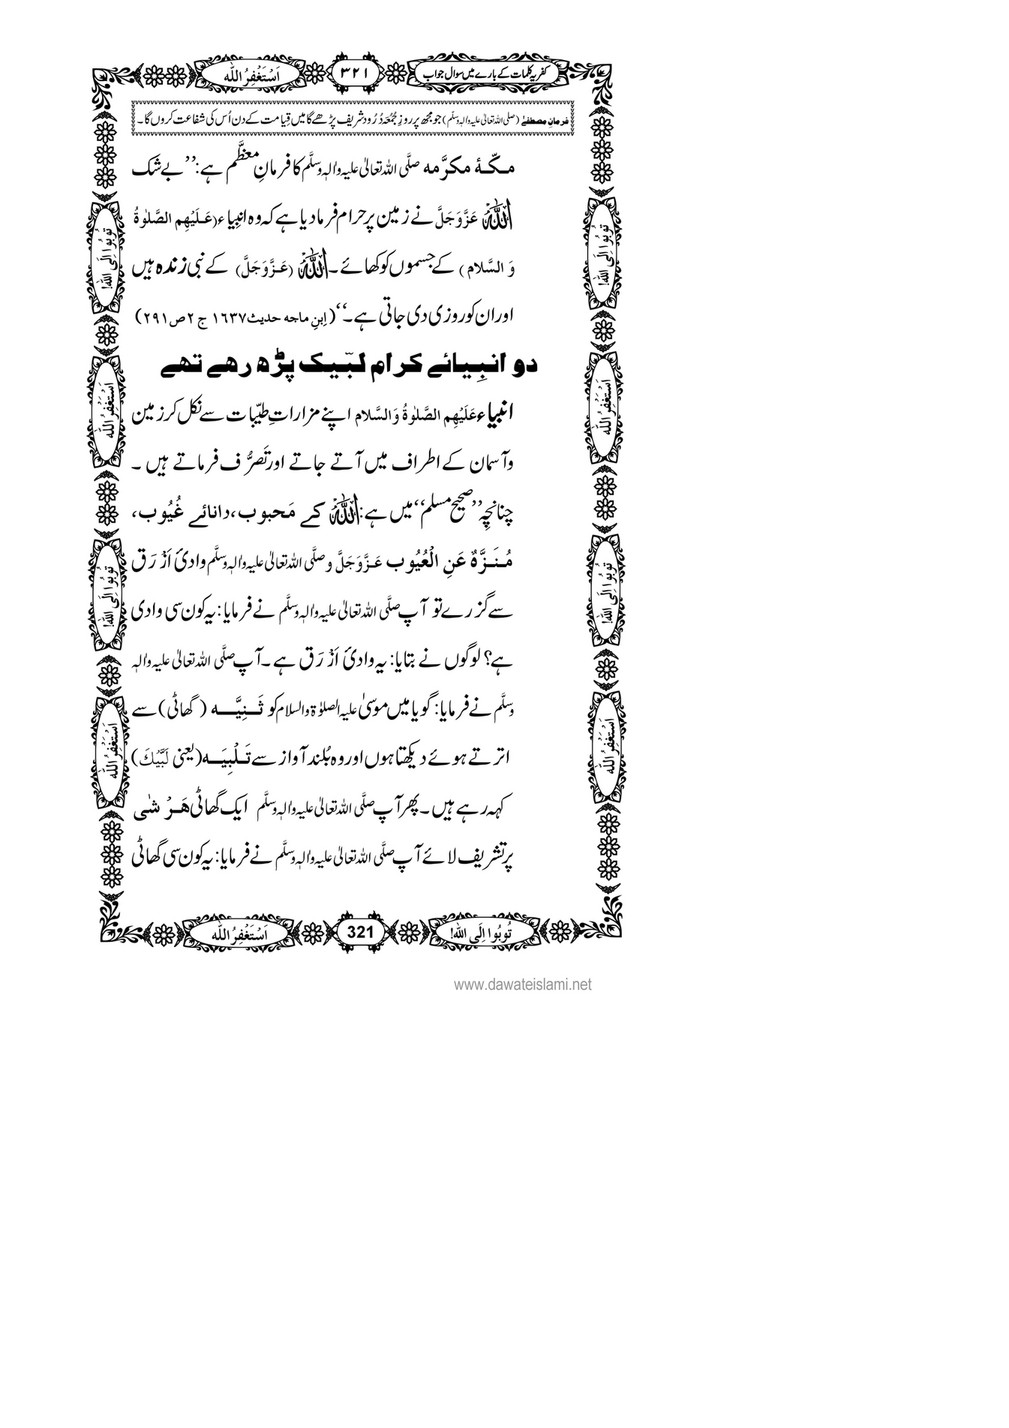 کفریہ کلمات کے بارے میں سوال جواب
۳۲۱
اَسْتَغْفِرُ اللّٰه
فرمانِ مصطفٰے (صلی اللہ تعالیٰ علیہ والہٖ وسلّم) جو مجھ پر روزِ جُمُعہ دُرُود شریف پڑھے گا میں قِیامت کے دن اُس کی شفاعت کروں گا۔
مکّۂ مکرَّمہ صلَّی اللہ تعالیٰ علیہ واٰلہٖ وسلَّم کا فرمانِ معظَّم ہے: ’’بے شک
اللہ عَزَّوَجَلَّ نے زمین پر حرام فرما دیا ہے کہ وہ انبِیاء (عَلَیْہِم الصَّلٰوۃُ
وَ السَّلام) کے جسموں کو کھائے۔ اللہ (عَزَّوَجَلَّ) کے نبی زندہ ہیں
اور ان کو روزی دی جاتی ہے۔‘‘ (اِبنِ ماجہ حدیث ۱۶۳۷ ج ۲ ص ۲۹۱)
دو انبِیائے کرام لبّیک پڑھ رھے تھے
انبیاء عَلَیْہِم الصَّلٰوۃُ وَالسَّلام اپنے مزاراتِ طیِّبات سے نکل کر زمین
وآسمان کے اطراف میں آتے جاتے اور تَصَرُّف فرماتے ہیں ۔
چنانچِہ ’’صحیح مسلم‘‘ میں ہے: اللہ کے مَحبوب، دانائے غُیُوب،
مُنَزَّہٌ عَنِ الْعُیُوب عَزَّوَجَلَّ وصلَّی اللہ تعالیٰ علیہ واٰلہٖ وسلَّم وادیٔ اَزْرَق
سے گزرے تو آپ صلَّی اللہ تعالیٰ علیہ واٰلہٖ وسلَّم نے فرمایا: یہ کون سی وادی
ہے؟ لوگوں نے بتایا: یہ وادیٔ اَزْرَق ہے۔ آپ صلَّی اللہ تعالیٰ علیہ واٰلہٖ
وسلَّم نے فرمایا: گویا میں موسیٰ علیہ الصلوٰۃ والسلام کو ثَنِیَّہ (گھاٹی) سے
اترتے ہوئے دیکھتا ہوں اور وہ بُلند آواز سے تَلْبِیَہ (یعنی لَبَّیْكَ)
کہہ رہے ہیں۔ پھر آپ صلَّی اللہ تعالیٰ علیہ واٰلہٖ وسلَّم ایک گھاٹی هَرْشٰی
پر تشریف لائے آپ صلَّی اللہ تعالیٰ علیہ واٰلہٖ وسلَّم نے فرمایا: یہ کون سی گھاٹی
تُوبُوا اِلَی اللّٰه!
اَسْتَغْفِرُ اللّٰه
تُوبُوا اِلَی اللّٰه!
اَسْتَغْفِرُ اللّٰه
تُوبُوا اِلَی اللّٰه!
اَسْتَغْفِرُ اللّٰه
تُوبُوا اِلَی اللّٰه!
اَسْتَغْفِرُ اللّٰه
تُوبُوا اِلَی اللّٰه!
321
اَسْتَغْفِرُ اللّٰه
www.dawateislami.net